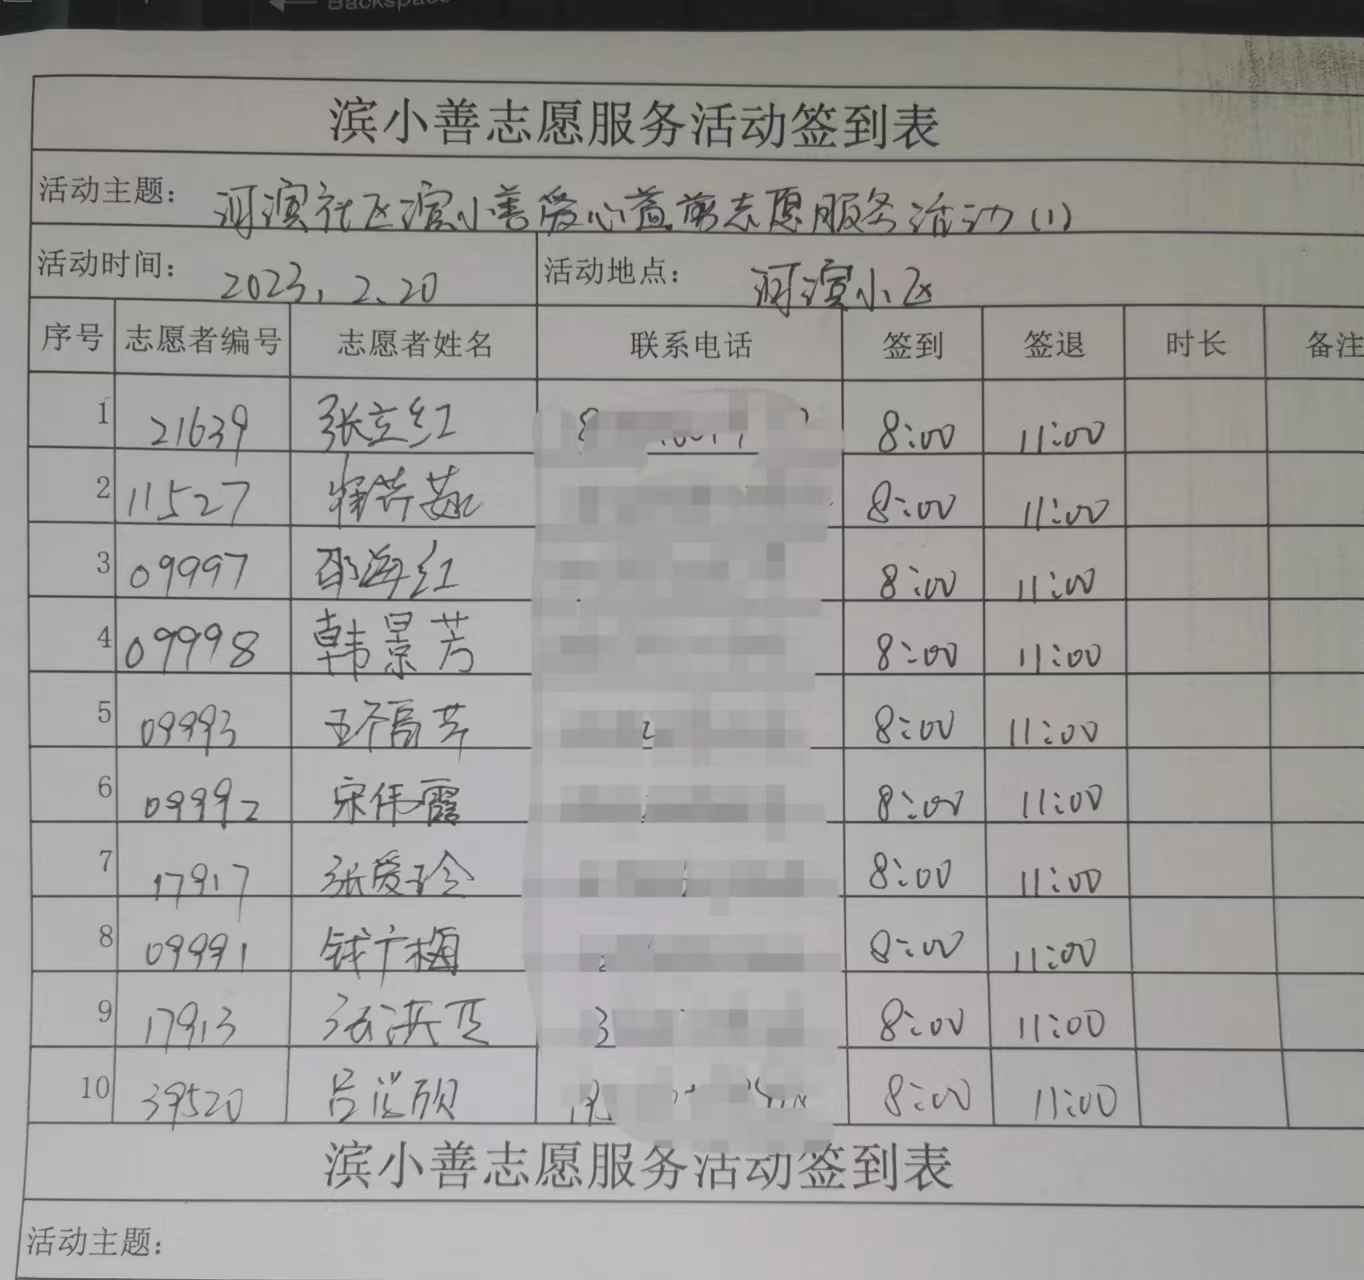 Backspace
滨小善志愿服务活动签到表
活动主题： 河滨社区滨小善爱心益剪志愿服务活动(1)
活动时间： 2023.2.20 活动地点： 河滨小区
序号 志愿者编号 志愿者姓名 联系电话 签到 签退 时长 备注
1 21639 张立红 8:00 11:00
2 11527 8:00 11:00
3 09997 邵海红 8:00 11:00
4 09998 韩景芳 8:00 11:00
5 09993 8:00 11:00
6 09992 宋伟霞 8:00 11:00
7 17917 张爱玲 8:00 11:00
8 09991 钱广梅 8:00 11:00
9 17913 8:00 11:00
10 39520 8:00 11:00
滨小善志愿服务活动签到表
活动主题：